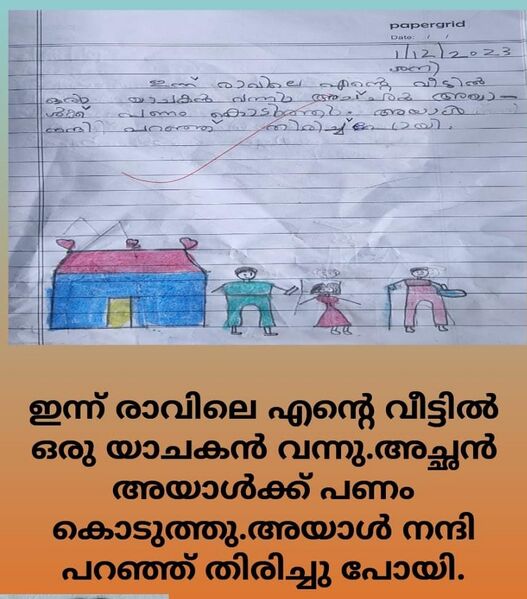 papergrid
Date: / /
1/12/2023
ശനി
ഇന്ന് രാവിലെ എന്റെ വീട്ടിൽ
ഒരു യാചകൻ വന്നു. അച്ഛൻ അയാ-
ൾക്ക് പണം കൊടുത്തു. അയാൾ
നന്ദി പറഞ്ഞ് തിരിച്ച് പോയി.
ഇന്ന് രാവിലെ എന്റെ വീട്ടിൽ
ഒരു യാചകൻ വന്നു.അച്ഛൻ
അയാൾക്ക് പണം
കൊടുത്തു.അയാൾ നന്ദി
പറഞ്ഞ് തിരിച്ചു പോയി.